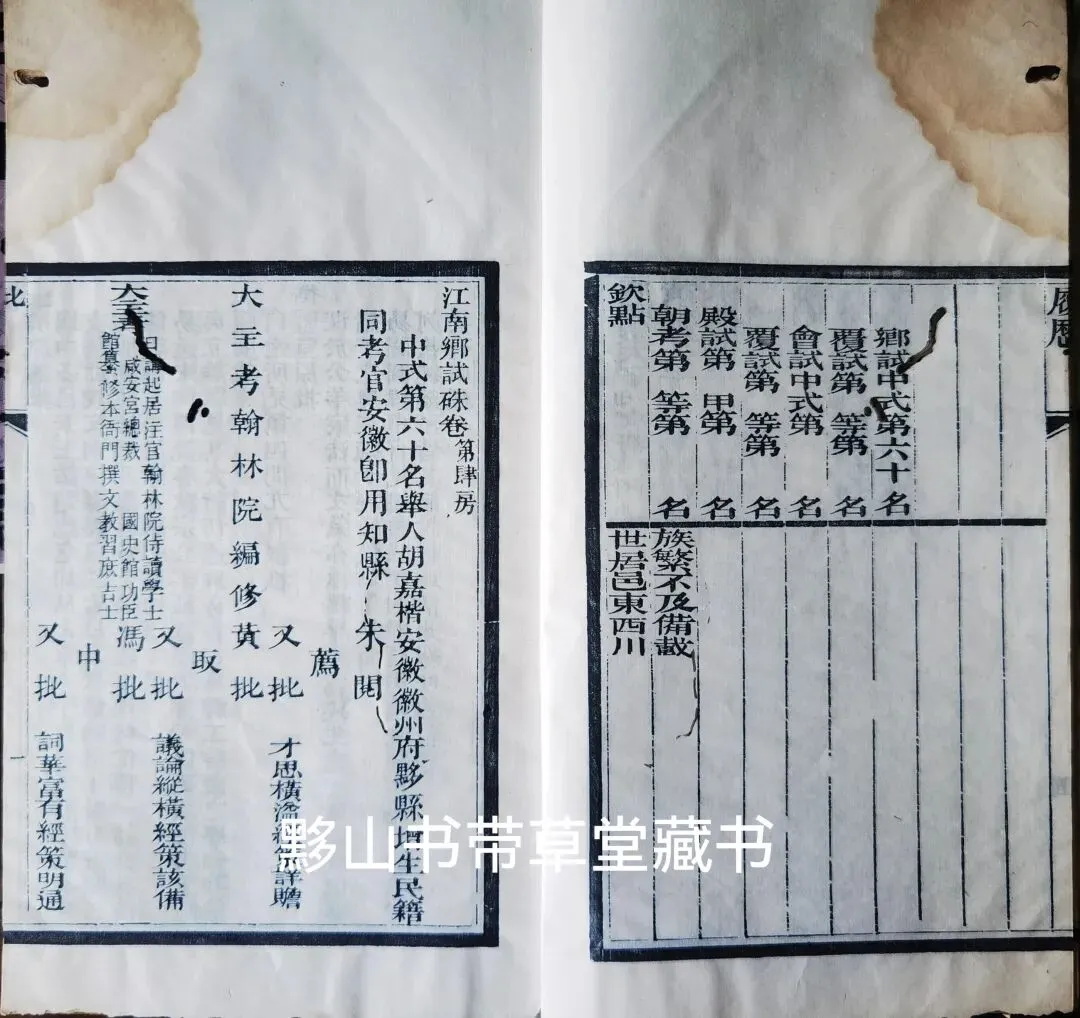 履歷
鄉試中式第六十名
覆試第 等第 名
會試中式第 名
覆試第 等第 名
殿試第 甲第 名
朝考第 等第 名
欽點
族繁不及備載
世居邑東西川
江南鄉試硃卷 第肆房
中式第六十名舉人胡嘉楷安徽徽州府黟縣增生民籍
同考官安徽卽用知縣 朱 閱
薦
又批 才思橫溢經策詳贍
大主考翰林院編修黃 批
取
又批 議論縱橫經策該備
大主考 日講起居注官翰林院侍讀學士 咸安宮總裁 國史館功臣 館纂修本衙門撰文教習庶吉士 馮 批
中
又批 詞華富有經策明通
批
一
黟山书带草堂藏书